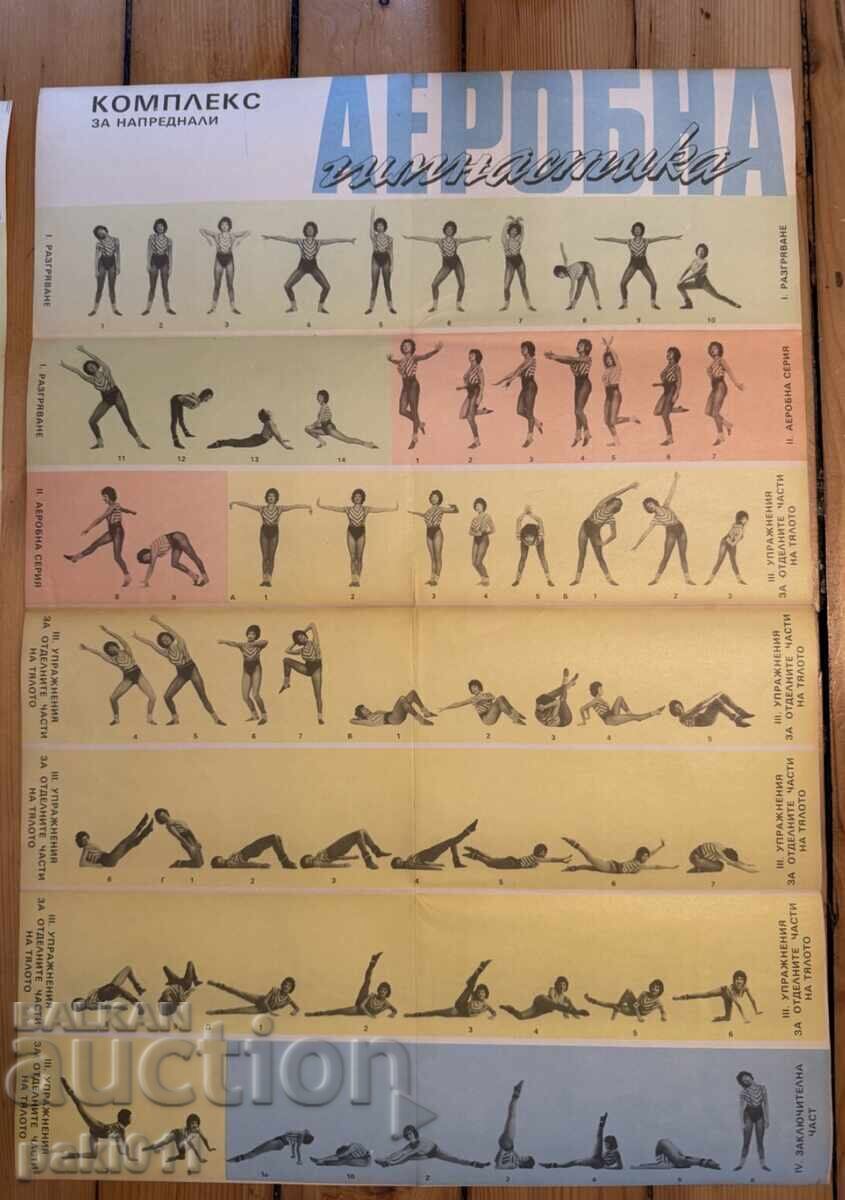 КОМПЛЕКС
ЗА НАПРЕДНАЛИ
АЕРОБНА
гимнастика
I. РАЗГРЯВАНЕ
1 2 3 4 5 6 7 8 9 10
I. РАЗГРЯВАНЕ
I. РАЗГРЯВАНЕ
11 12 13 14
1 2 3 4 5 6 7
II. АЕРОБНА СЕРИЯ
II. АЕРОБНА СЕРИЯ
8 9
А 1 2 3 4 5 Б 1 2 3
III. УПРАЖНЕНИЯ
ЗА ОТДЕЛНИТЕ ЧАСТИ
НА ТЯЛОТО
III. УПРАЖНЕНИЯ
ЗА ОТДЕЛНИТЕ ЧАСТИ
НА ТЯЛОТО
4 5 6 7 В 1 2 3 4 5
III. УПРАЖНЕНИЯ
ЗА ОТДЕЛНИТЕ ЧАСТИ
НА ТЯЛОТО
III. УПРАЖНЕНИЯ
ЗА ОТДЕЛНИТЕ ЧАСТИ
НА ТЯЛОТО
6 Г 1 2 3 4 5 6 7
III. УПРАЖНЕНИЯ
ЗА ОТДЕЛНИТЕ ЧАСТИ
НА ТЯЛОТО
III. УПРАЖНЕНИЯ
ЗА ОТДЕЛНИТЕ ЧАСТИ
НА ТЯЛОТО
1 2 3 4 5 6
III. УПРАЖНЕНИЯ
ЗА ОТДЕЛНИТЕ ЧАСТИ
НА ТЯЛОТО
III. УПРАЖНЕНИЯ
ЗА ОТДЕЛНИТЕ ЧАСТИ
НА ТЯЛОТО
IV. ЗАКЛЮЧИТЕЛНА
ЧАСТ
BALKAN
auction
paki911